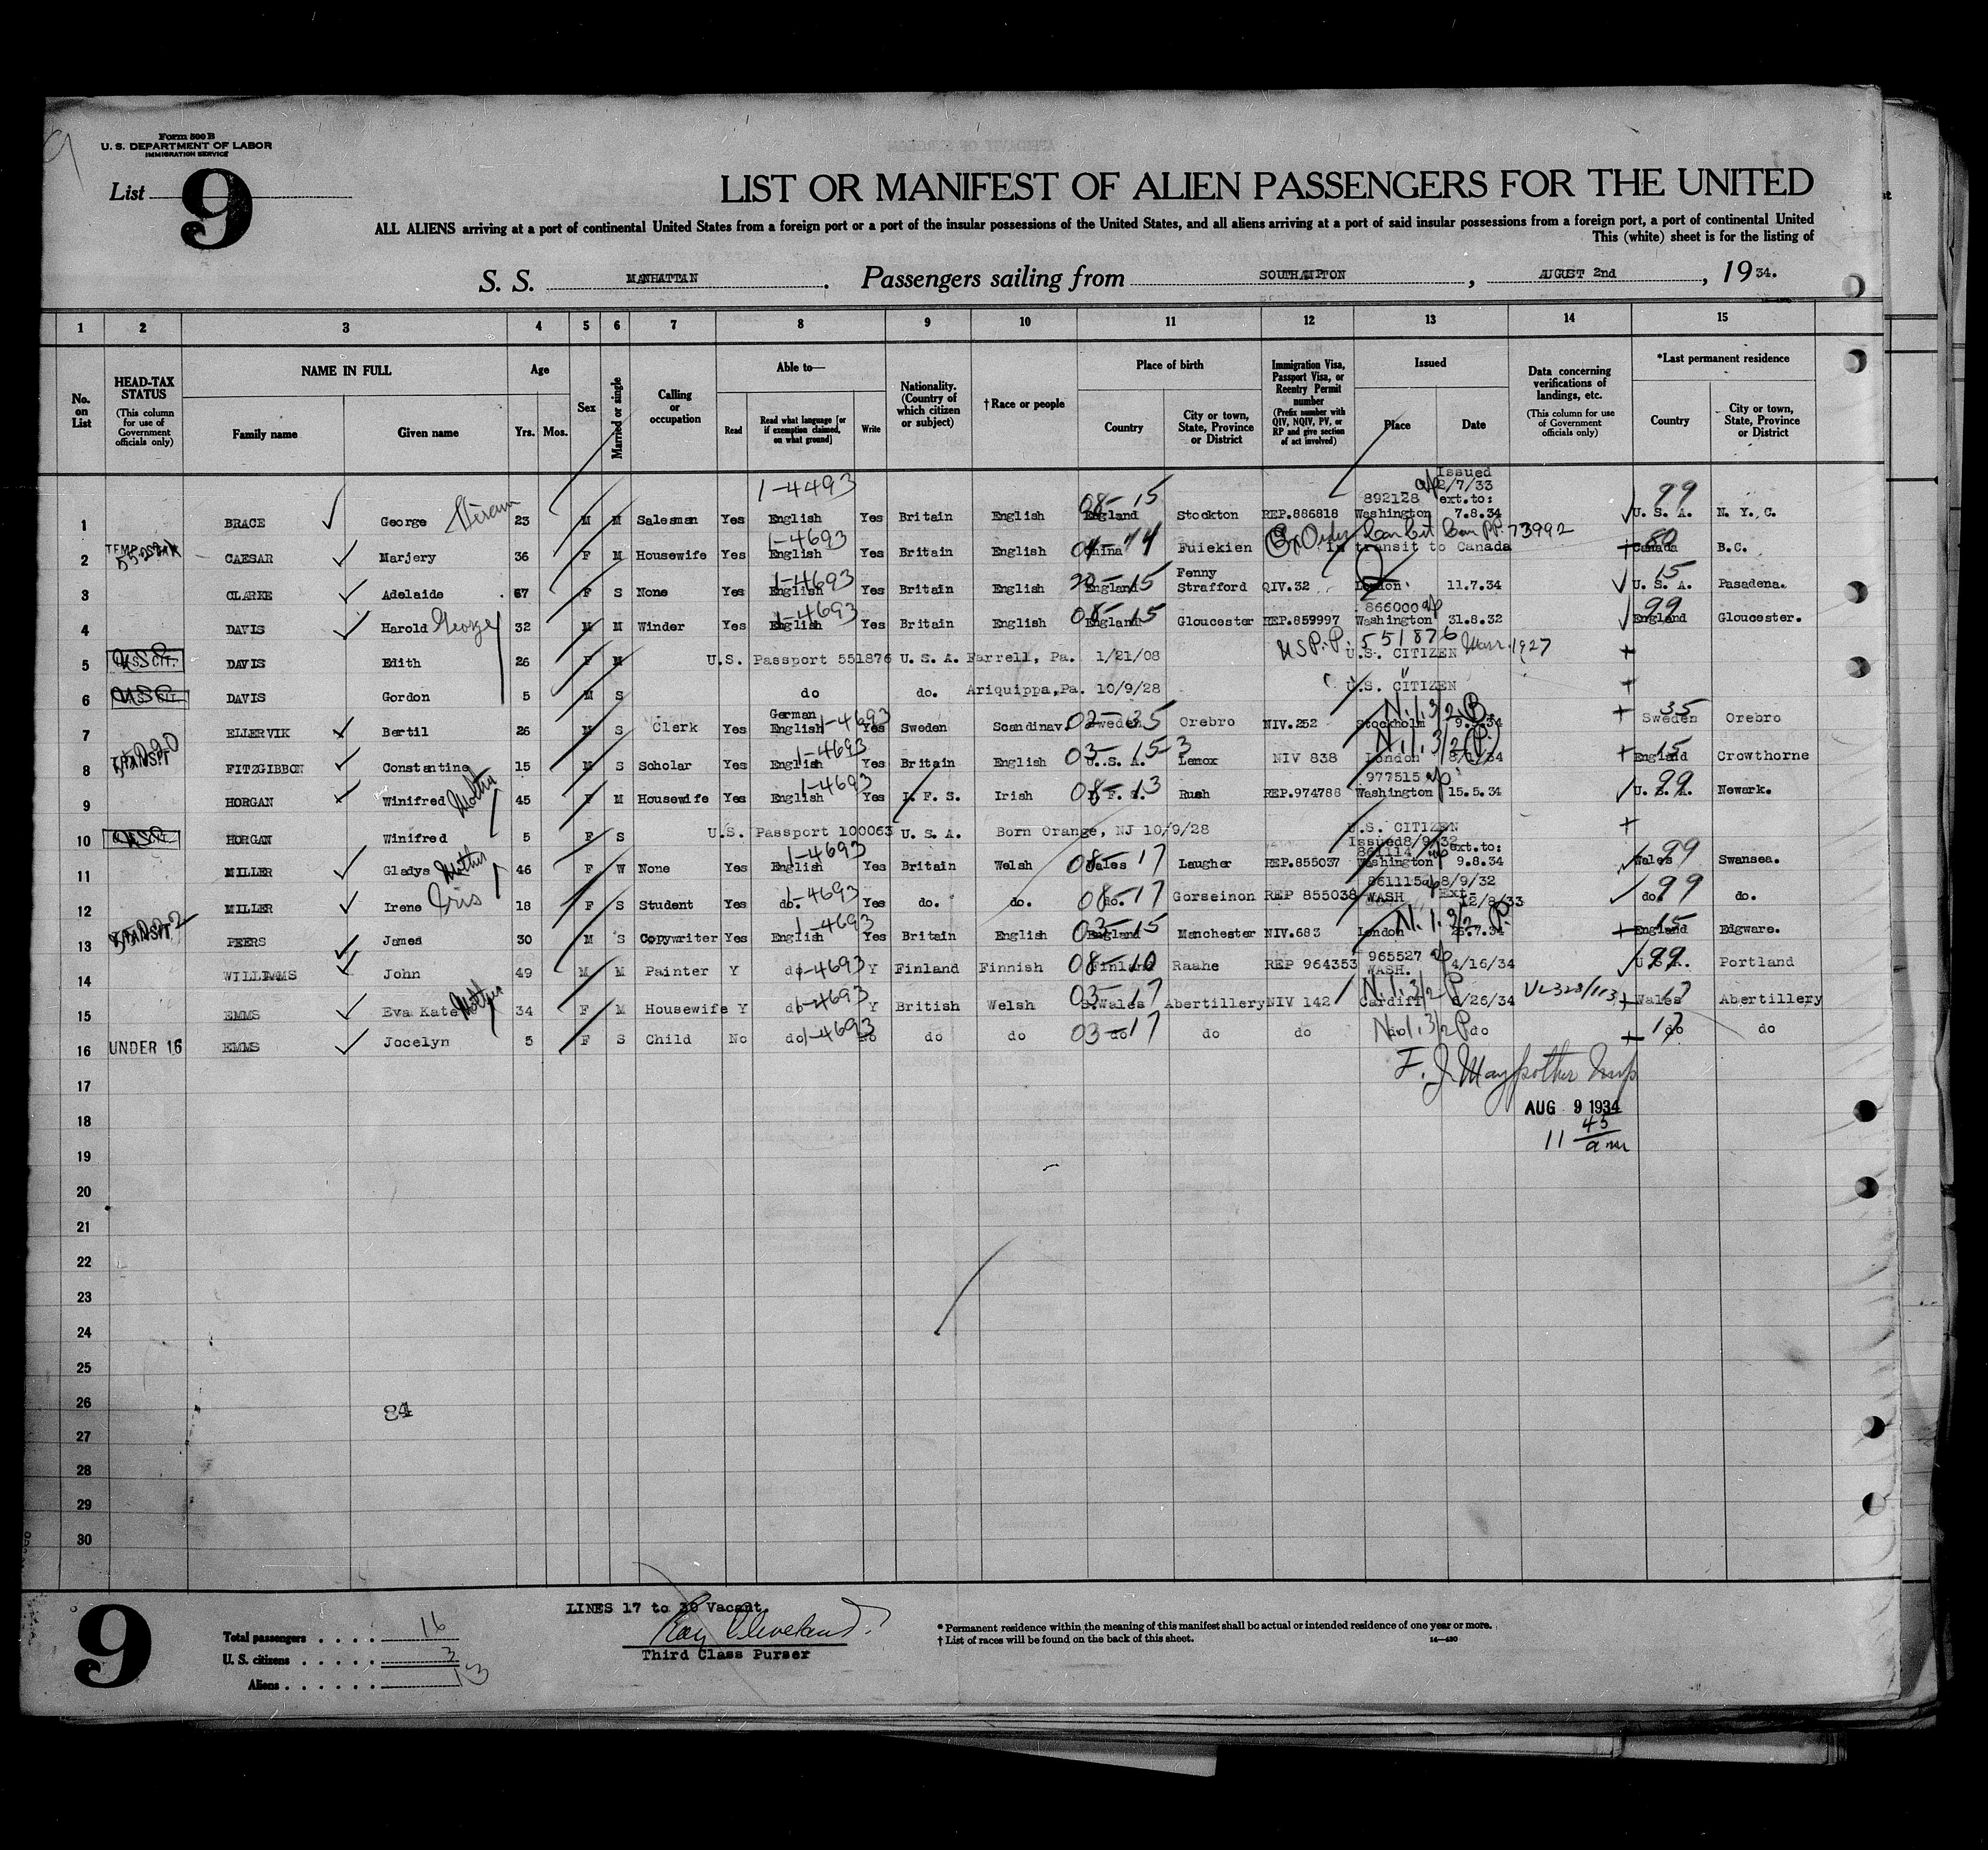 Form 500 B
U. S. DEPARTMENT OF LABOR
IMMIGRATION SERVICE
List 9
LIST OR MANIFEST OF ALIEN PASSENGERS FOR THE UNITED
ALL ALIENS arriving at a port of continental United States from a foreign port or a port of the insular possessions of the United States, and all aliens arriving at a port of said insular possessions from a foreign port, a port of continental United
This (white) sheet is for the listing of
S. S. MANHATTAN. Passengers sailing from SOUTHAMPTON, AUGUST 2nd, 1934.
1 2 3 4 5 6 7 8 9 10 11 12 13 14 15
No. on List
HEAD-TAX STATUS (This column for use of Government officials only)
NAME IN FULL
Family name Given name
Age
Yrs. Mos.
Sex
Married or single
Calling or occupation
Able to—
Read Read what language [or if exemption claimed, on what ground] Write
Nationality. (Country of which citizen or subject)
† Race or people
Place of birth
Country City or town, State, Province or District
Immigration Visa, Passport Visa, or Reentry Permit number (Prefix number with QIV, NQIV, PV, or RP and give section of act involved)
Issued
Place Date
Data concerning verifications of landings, etc. (This column for use of Government officials only)
*Last permanent residence
Country City or town, State, Province or District
1-4493 08-15 892128 Issued 2/7/33 ext.to: 99
1 BRACE George Hiram 23 M M Salesman Yes English Yes Britain English England Stockton REP.886818 Washington 7.8.34 U. S. A. N. Y. C.
1-4693 73992
2 CAESAR Marjery 36 F M Housewife Yes English Yes Britain English China Fuiekien In transit to Canada Canada B.C.
1-4693 15 15
3 CLARKE Adelaide 67 F S None Yes English Yes Britain English England Fenny Strafford QIV.32 London 11.7.34 U. S. A. Pasadena.
1-4693 08-15 866000 99
4 DAVIS Harold George 32 M M Winder Yes English Yes Britain English England Gloucester REP.859997 Washington 31.8.32 England Gloucester.
U.S.P.P. 551876
5 U.S. CIT. DAVIS Edith 26 F M U.S. Passport 551876 U. S. A. Farrell, Pa. 1/21/08 U.S. CITIZEN Marr. 1927
6 U.S. CIT. DAVIS Gordon 5 M S do do. Ariquippa,Pa. 10/9/28 U.S. CITIZEN
1-4693 02-35 N.1.3/2.B. 35
7 ELLERVIK Bertil 26 M S Clerk Yes German English Yes Sweden Scandinav. Sweden Orebro NIV.252 Stockholm Sweden Orebro
1-4693 03-15-3 N.1.3/2(P.) 15
8 TRANSIT FITZGIBBON Constantine 15 M S Scholar Yes English Yes Britain English U. S. A. Lenox NIV 838 London England Crowthorne
1-4693 08-13 977515 99
9 HORGAN Winifred Mother 45 F M Housewife Yes English Yes I. F. S. Irish I. F. S. Rush REP.974788 Washington 15.5.34 U. S. A. Newark.
10 HORGAN Winifred 5 F S U.S. Passport 100063 U. S. A. Born Orange, NJ 10/9/28 U.S. CITIZEN
1-4693 08-17 861114 Issued8/9/32 ext.to: 99
11 MILLER Gladys Mother 46 F W None Yes English Yes Britain Welsh Wales Laugher REP.855037 Washington 9.8.34 Wales Swansea.
1-4693 08-17 861115 8/9/32 Ext. 99
12 MILLER Irene Iris 18 F S Student Yes do. Yes do. do. do. Gorseinon REP 855038 WASH 12/8/33 do. do.
1-4693 03-15 N.1.3/2 P. 15
13 TRANSIT PEERS James 30 M S Copywriter Yes English Yes Britain English England Manchester NIV.683 London 26.7.34 England Edgware.
1-4693 08-10 965527 99
14 WILLIAMS John 49 M M Painter Y do Y Finland Finnish Finland Raahe REP 964353 WASH. 4/16/34 U.S.A. Portland
1-4693 03-17 N.1.3/2 P 17
15 EMMS Eva Kate Mother 34 F M Housewife Y do Y British Welsh S.Wales Abertillery NIV 142 Cardiff 6/26/34 Wales Abertillery
1-4693 03-17 N.1.3/2 P 17
16 UNDER 16 EMMS Jocelyn 5 F S Child No do do do do do do do do do do do
17
F. J. Maypother Insp
18
AUG 9 1934
11 45 am
19
20
21
22
23
24
25
26 84
27
28
29
30
9
LINES 17 to 30 Vacant.
Total passengers . . . . 16
U. S. citizens . . . . . 3
Aliens . . . . . . 13
Ray Cleveland
Third Class Purser
* Permanent residence within the meaning of this manifest shall be actual or intended residence of one year or more.
† List of races will be found on the back of this sheet. 14—430